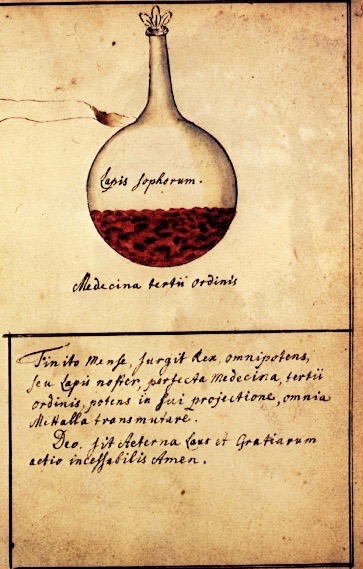 Lapis sophorum.
Medecina tertii ordinis
Finito Mense, surgit Rex, omnipotens,
seu Lapis noster, perfecta Medecina, tertii
ordinis, potens in sui projectione, omnia
Metalla transmutare.
Deo. sit Aeterna Laus et Gratiarum
actio incessabilis Amen.